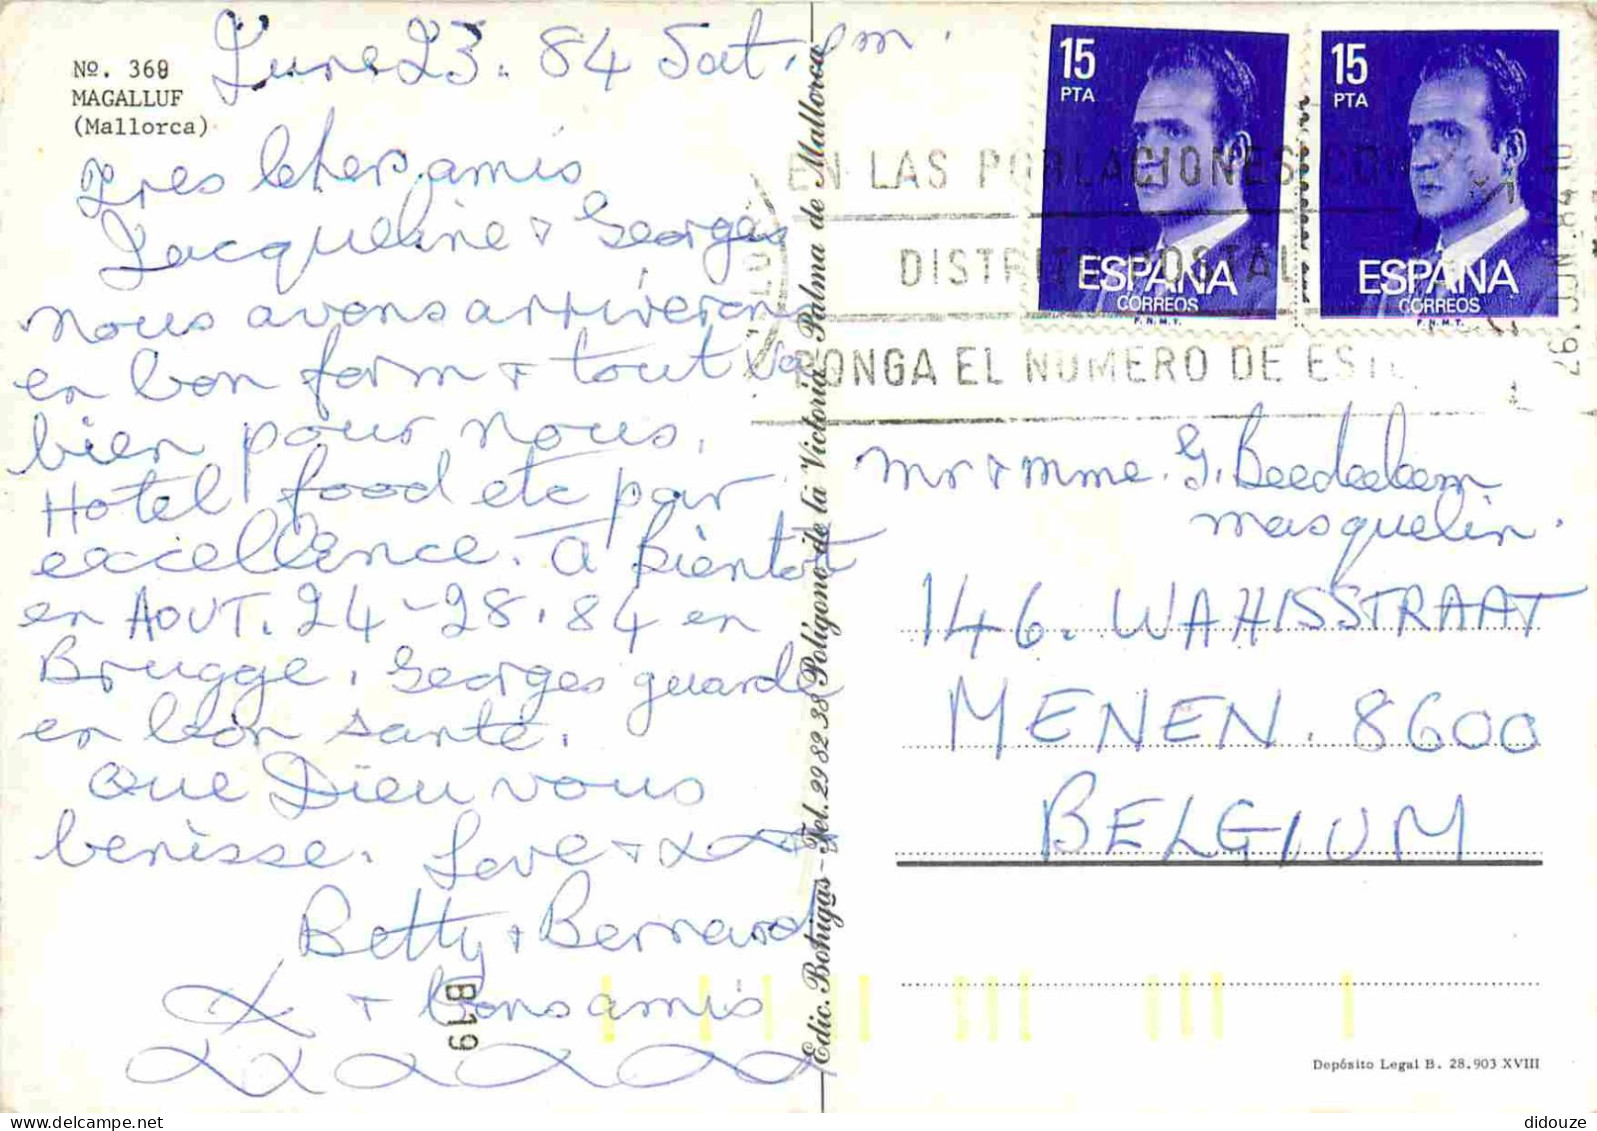 Nº. 369
MAGALLUF
(Mallorca)
June 23. 84 Sat. pm.
Tres Chers amis
Jacqueline + Georges
nous avons arriveron
en bon form + tout va
bien pour nous.
Hotel food etc par
excellence. A bientot
en AOUT. 24-28.84 en
Brugge. Georges guarde
en bon santé.
Que Dieu vous
benisse. Love +
Betty + Bernard
+ bons amis
B19
Edic. Bohigas - Tel. 29 82 38 Polígono de la Victoria Palma de Mallorca
15
PTA
ESPAÑA
CORREOS
F.N.M.T.
15
PTA
ESPAÑA
CORREOS
F.N.M.T.
EN LAS POBLACIONES CON
DISTRITO POSTAL
PONGA EL NUMERO DE ESTE
26. JUN. 84
mr + mme. G.
masquelin.
146. WAHISSTRAAT
MENEN. 8600
BELGIUM
Depósito Legal B. 28.903 XVIII
didouze